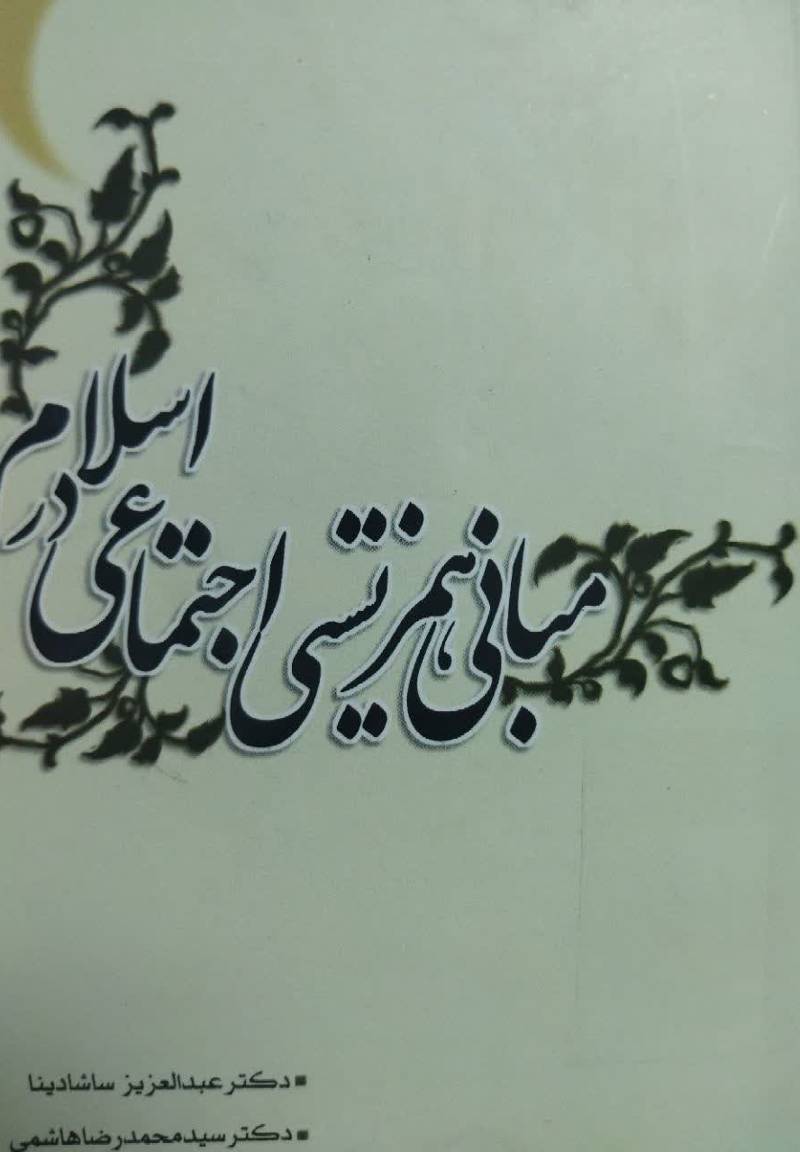 مبانی همزیستی اجتماعی در اسلام
دکتر عبدالعزیز ساشادینا
دکتر سیدمحمدرضاهاشمی